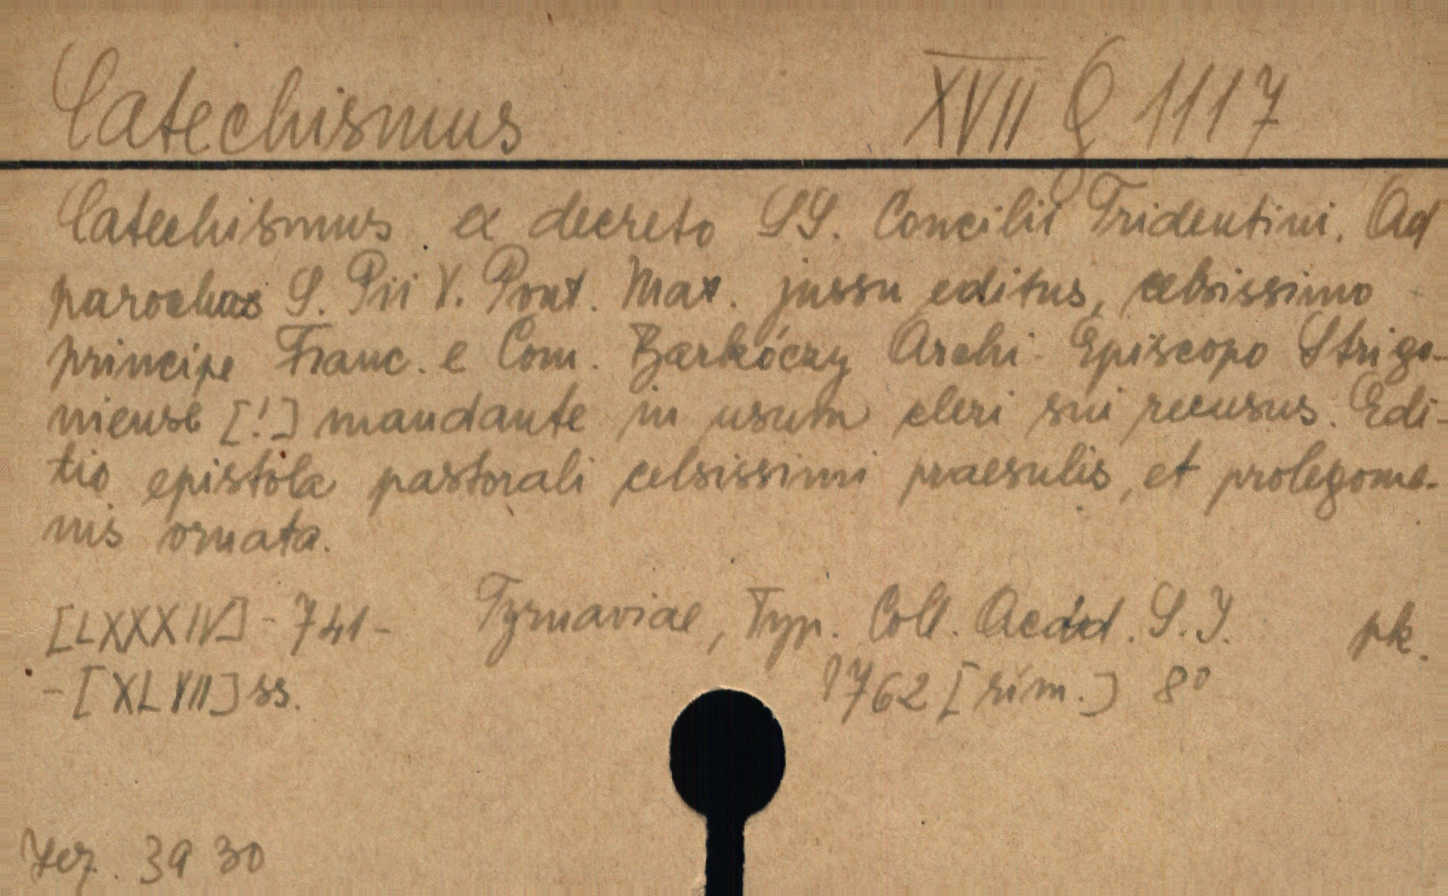 Catechismus XVII G 1117
Catechismus ex decreto SS. Concilii Tridentini. Ad
parochos S. Pii V. Pont. Max. jussu editus, celsissimo
principe Franc. e Com. Barkóczy Archi-Episcopo Strigo-
niense [!] mandante in usum cleri sui recusus. Edi-
tio epistola pastorali celsissimi praesulis, et prolegome-
nis ornata.
[LXXXIV]-741- Tyrnaviae, Typ. Coll. Acad. S. J. pk.
-[XLVII] ss. 1762 [rím.] 8°
Jez. 39 30